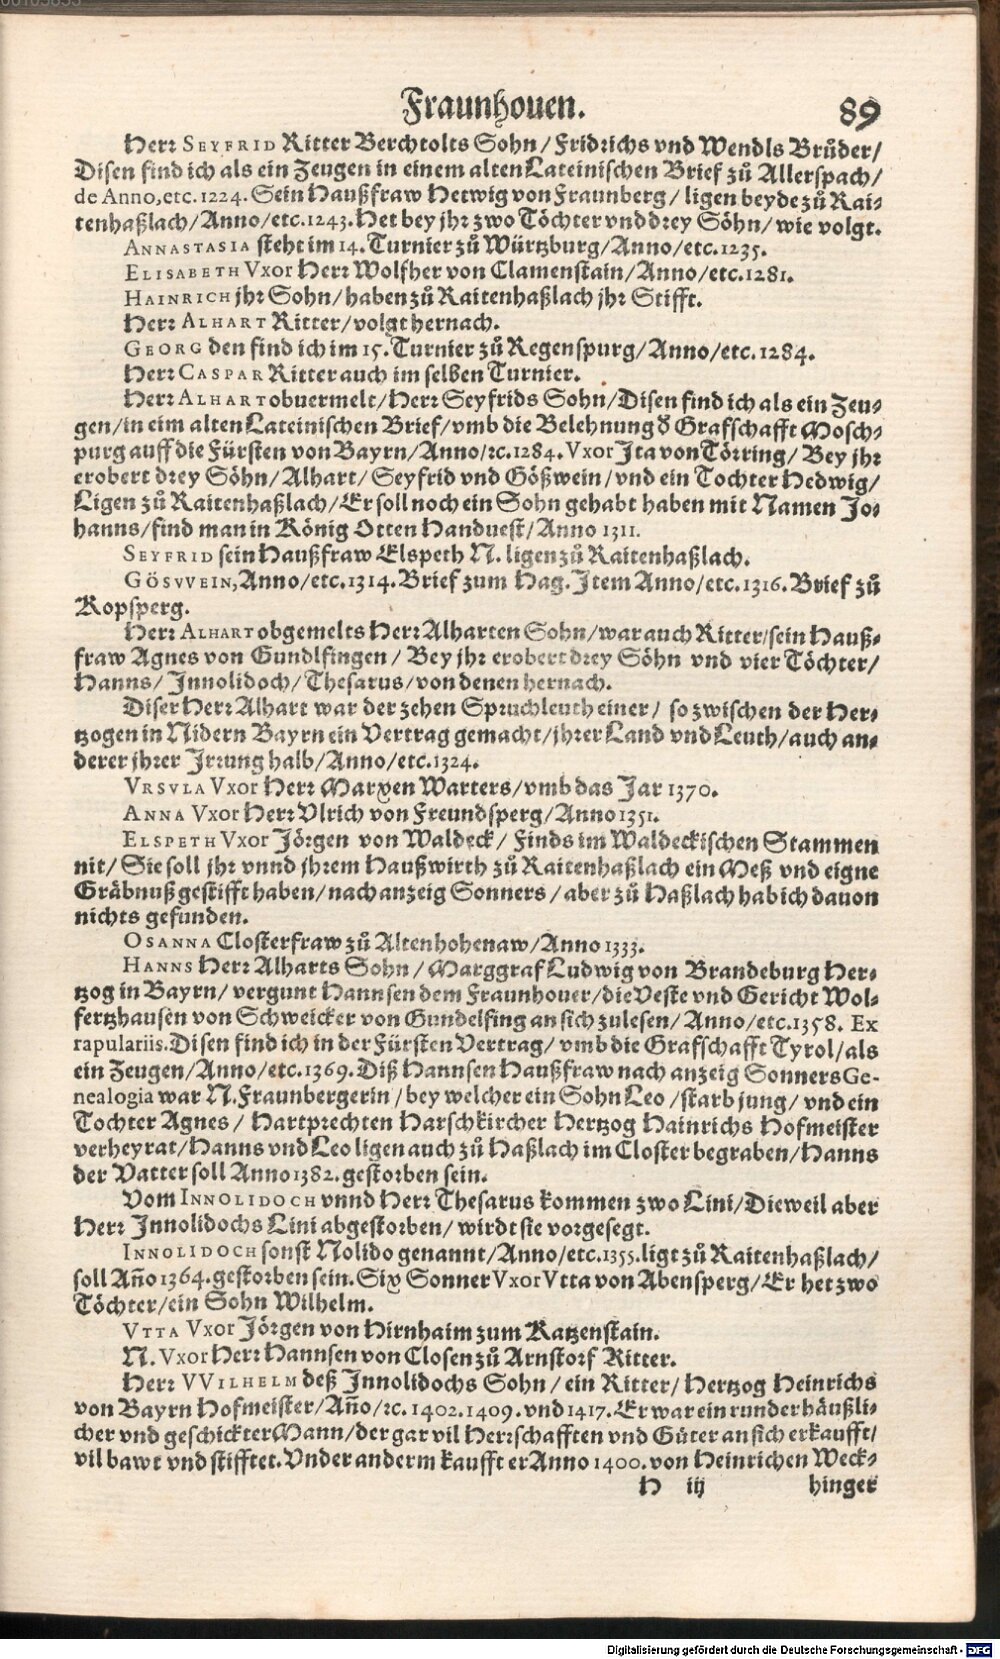 Fraunhouen. 89
Herr SEYFRID Ritter Berchtolts Sohn / Fridrichs vnd Wendls Brůder /
Disen find ich als ein Zeugen in einem alten Lateinischen Brief zů Allerspach /
de Anno, etc. 1224. Sein Haußfraw Hetwig von Fraunberg / ligen beyde zů Rai-
tenhaßlach / Anno / etc. 1243. Het bey jhr zwo Töchter vnd drey Söhn / wie volgt.
ANNASTASIA steht im 14. Turnier zů Würtzburg / Anno / etc. 1235.
ELISABETH Vxor Herr Wolfher von Clamenstain / Anno / etc. 1281.
HAINRICH jhr Sohn / haben zů Raitenhaßlach jhr Stifft.
Herr ALHART Ritter / volgt hernach.
GEORG den find ich im 15. Turnier zů Regenspurg / Anno / etc. 1284.
Herr CASPAR Ritter auch im selben Turnier.
Herr ALHART obuermelt / Herr Seyfrids Sohn / Disen find ich als ein Zeu-
gen / in eim alten Lateinischen Brief / vmb die Belehnung d' Grafschafft Mosch-
purg auff die Fürsten von Bayrn / Anno / ꝛc. 1284. Vxor Jta von Törring / Bey jhr
erobert drey Söhn / Alhart / Seyfrid vnd Gößwein / vnd ein Tochter Hedwig /
Ligen zů Raitenhaßlach / Er soll noch ein Sohn gehabt haben mit Namen Jo-
hanns / find man in König Otten Handuest / Anno 1311.
SEYFRID sein Haußfraw Elspeth N. ligen zů Raitenhaßlach.
GÖSVVEIN, Anno / etc. 1314. Brief zum Hag. Jtem Anno / etc. 1316. Brief zů
Kopsperg.
Herr ALHART obgemelts Herr Alharten Sohn / war auch Ritter / sein Hauß-
fraw Agnes von Gundlfingen / Bey jhr erobert drey Söhn vnd vier Töchter /
Hanns / Jnnolidoch / Thesarus / von denen hernach.
Diser Herr Alhart war der zehen Spruchleuth einer / so zwischen der Her-
tzogen in Nidern Bayrn ein Vertrag gemacht / jhrer Land vnd Leuth / auch an-
derer jhrer Jrrung halb / Anno / etc. 1324.
VRSVLA Vxor Herr Marxen Warters / vmb das Jar 1370.
ANNA Vxor Herr Vlrich von Freundsperg / Anno 1351.
ELSPETH Vxor Jörgen von Waldeck / Finds im Waldeckischen Stammen
nit / Sie soll jhr vnnd jhrem Haußwirth zů Raitenhaßlach ein Meß vnd eigne
Gräbnuß gestifft haben / nach anzeig Sonners / aber zů Haßlach hab ich dauon
nichts gefunden.
OSANNA Closterfraw zů Altenhohenaw / Anno 1333.
HANNS Herr Alharts Sohn / Marggraf Ludwig von Brandeburg Her-
tzog in Bayrn / vergunt Hannsen dem Fraunhouer / die Veste vnd Gericht Wol-
fertzhausen von Schweicker von Gundelfing an sich zulesen / Anno / etc. 1358. Ex
rapulariis. Disen find ich in der Fürsten Vertrag / vmb die Grafschafft Tyrol / als
ein Zeugen / Anno / etc. 1369. Diß Hannsen Haußfraw nach anzeig Sonners Ge-
nealogia war N. Fraunbergerin / bey welcher ein Sohn Leo / starb jung / vnd ein
Tochter Agnes / Hartprechten Harschkircher Hertzog Hainrichs Hofmeister
verheyrat / Hanns vnd Leo ligen auch zů Haßlach im Closter begraben / Hanns
der Vatter soll Anno 1382. gestorben sein.
Vom INNOLIDOCH vnnd Herr Thesarus kommen zwo Lini / Dieweil aber
Herr Jnnolidochs Lini abgestorben / wirdt sie vorgesegt.
INNOLIDOCH sonst Nolido genannt / Anno / etc. 1355. ligt zů Raitenhaßlach /
soll Año 1364. gestorben sein. Six Sonner Vxor Vtta von Abensperg / Er het zwo
Töchter / ein Sohn Wilhelm.
VTTA Vxor Jörgen von Hirnhaim zum Katzenstain.
N. Vxor Herr Hannsen von Closen zů Arnstorf Ritter.
Herr VVILHELM deß Jnnolidochs Sohn / ein Ritter / Hertzog Heinrichs
von Bayrn Hofmeister / Año / ꝛc. 1402. 1409. vnd 1417. Er war ein runder häußli-
cher vnd geschickter Mann / der gar vil Herrschafften vnd Güter an sich erkaufft /
vil bawt vnd stifftet. Vnder anderm kaufft er Anno 1400. von Heinrichen Weck-
H iij hinger
Digitalisierung gefördert durch die Deutsche Forschungsgemeinschaft - DFG